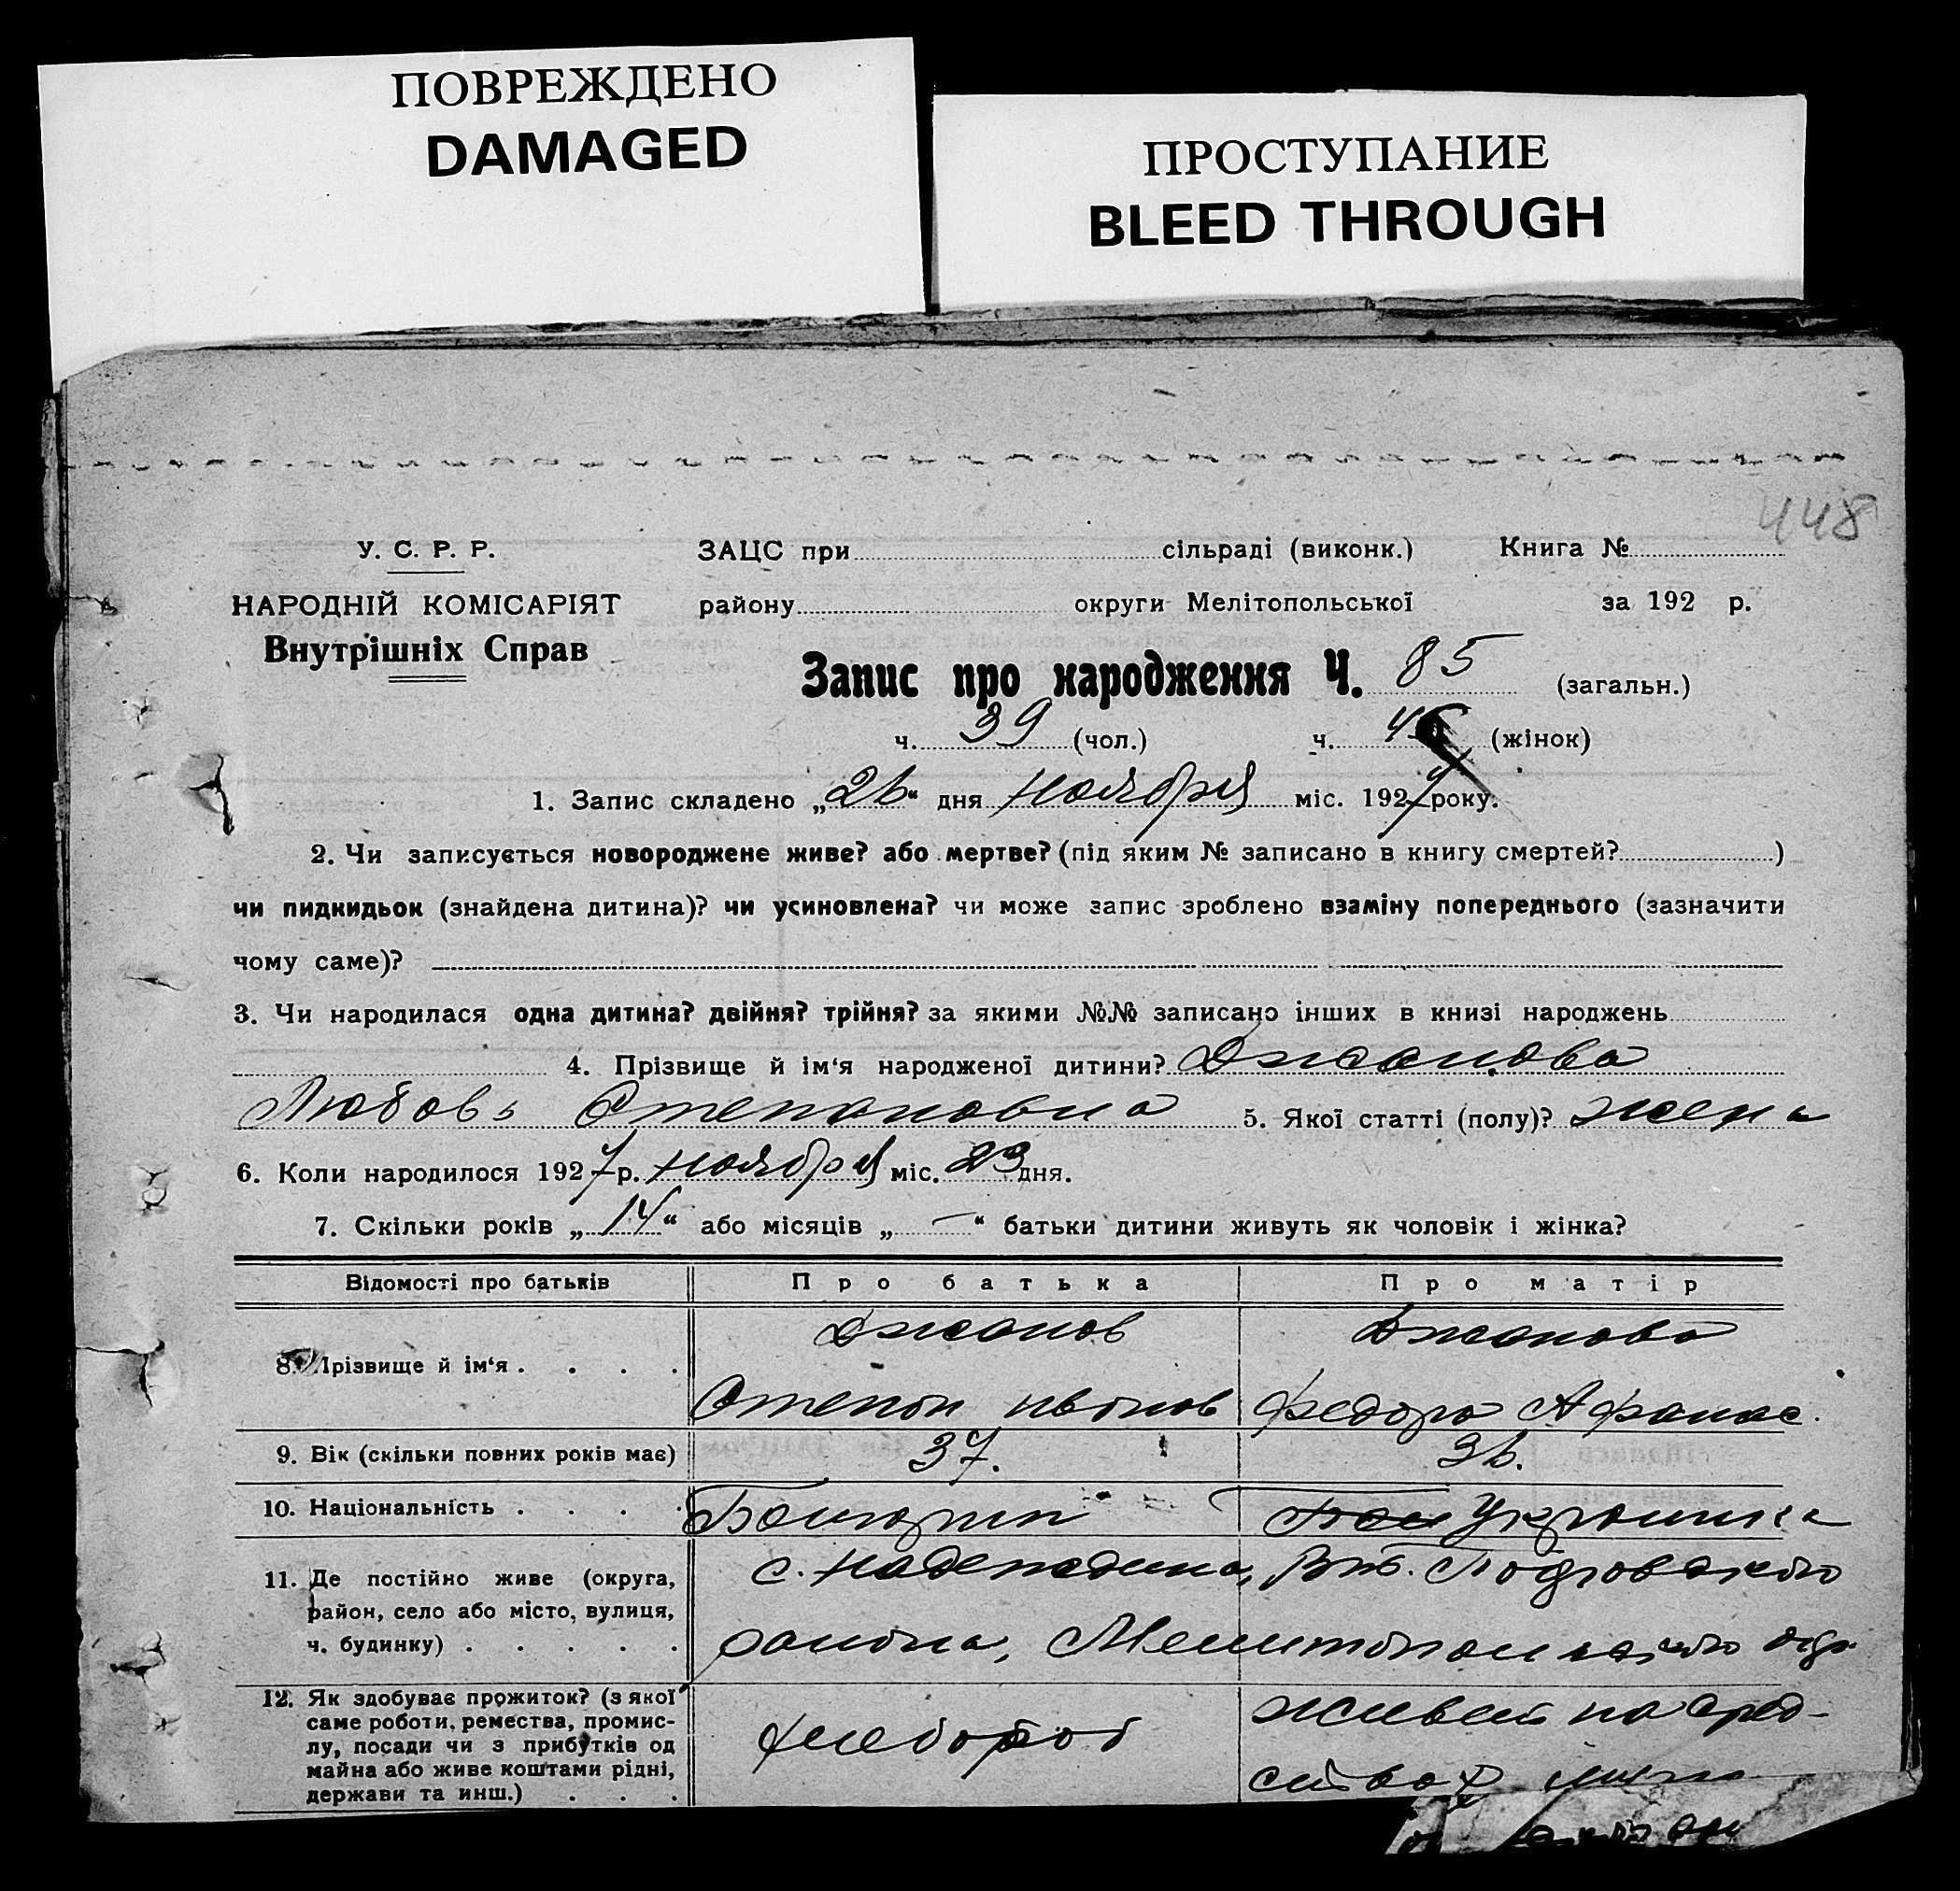 ПОВРЕЖДЕНО
DAMAGED
ПРОСТУПАНИЕ
BLEED THROUGH
448
У. С. Р. Р.
ЗАЦС при сільраді (виконк.) Книга №
НАРОДНІЙ КОМІСАРІЯТ
району округи Мелітопольської за 192 р.
Внутрішніх Справ
Запис про народження Ч. 85 (загальн.)
ч. 39 (чол.) ч. 46 (жінок)
1. Запис складено „26“ дня ноября міс. 1927 року.
2. Чи записується новороджене живе? або мертве? (під яким № записано в книгу смертей? )
чи пидкидьок (знайдена дитина)? чи усиновлена? чи може запис зроблено взаміну попереднього (зазначити
чому саме)?
3. Чи народилася одна дитина? двійня? трійня? за якими №№ записано інших в книзі народжень
4. Прізвище й ім‘я народженої дитини? Джанова
Любовь Степановна 5. Якої статті (полу)? жена
6. Коли народилося 1927 р. ноября міс. 23 дня.
7. Скільки років „14“ або місяців „—“ батьки дитини живуть як чоловік і жінка?
Відомості про батьків Про батька Про матір
Джанов Джанова
8. Прізвище й ім‘я . . . .
Степан Иванов Федора Афанас.
9. Вік (скільки повних років має) 37. 36.
10. Національність . . . . Болгарин Укра
11. Де постійно живе (округа, район, село або місто, вулиця, ч. будинку) . . . . .
с. Надеждино,
района, Мелитопольского окр.
12. Як здобуває прожиток? (з якої
саме роботи, ремества, промис-
лу, посади чи з прибутків од
майна або живе коштами рідні,
держави та инш.) . . .
хлебороб
живет на сред-
ствах мужа